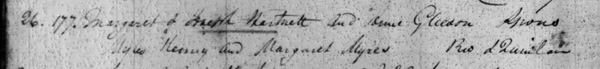 26. 177. Margaret of Joseph Hartnett and Anne Gleeson Spons
Myles Kenny and Margaret Myres Rev d Quinlan